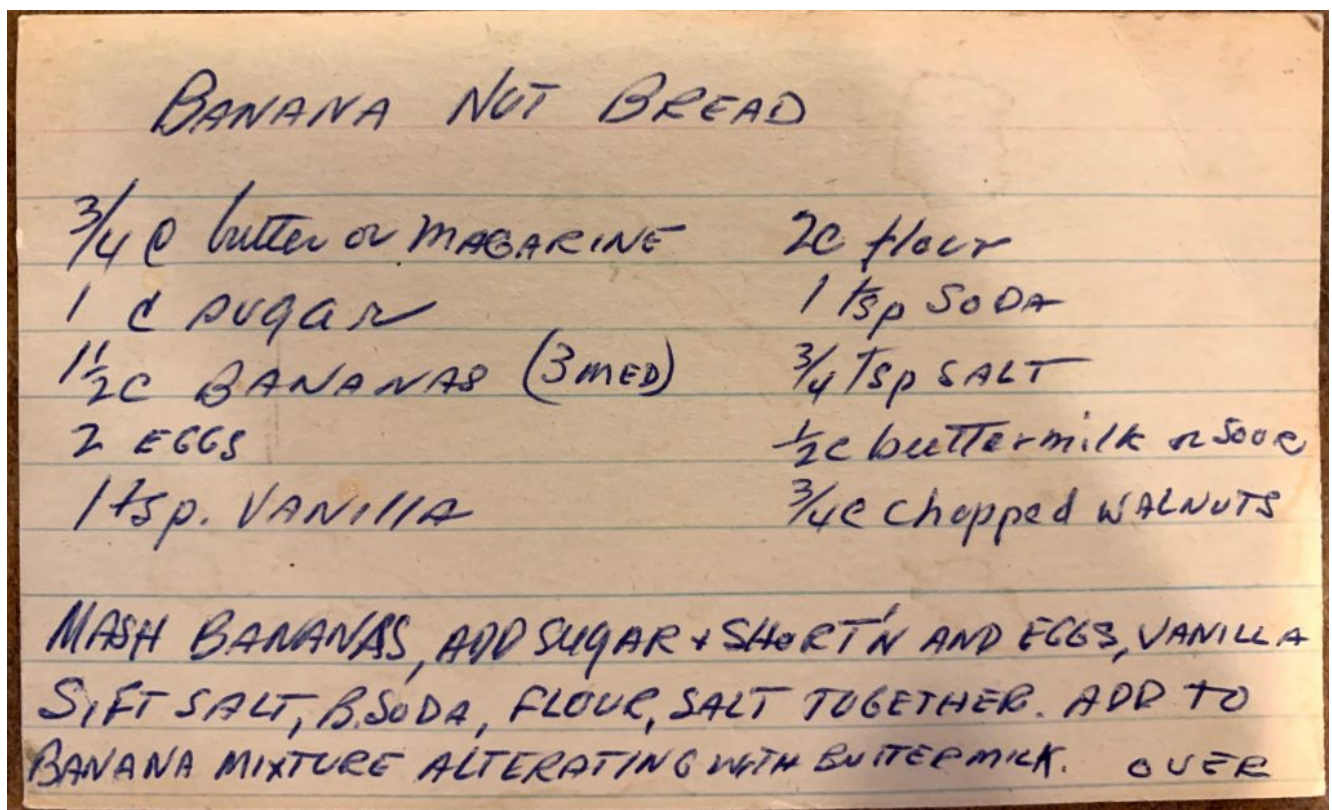 BANANA NUT BREAD
3/4 C butter or MAGARINE
1 C sugar
1 1/2 C BANANAS (3 MED)
2 EGGS
1 tsp. VANILLA
2C flour
1 tsp SODA
3/4 Tsp SALT
1/2 C buttermilk or SOUR
3/4 C Chopped WALNUTS
MASH BANANAS, ADD SUGAR + SHORT'N AND EGGS, VANILLA
SIFT SALT, B.SODA, FLOUR, SALT TOGETHER. ADD TO
BANANA MIXTURE ALTERATING WITH BUTTERMILK. OVER